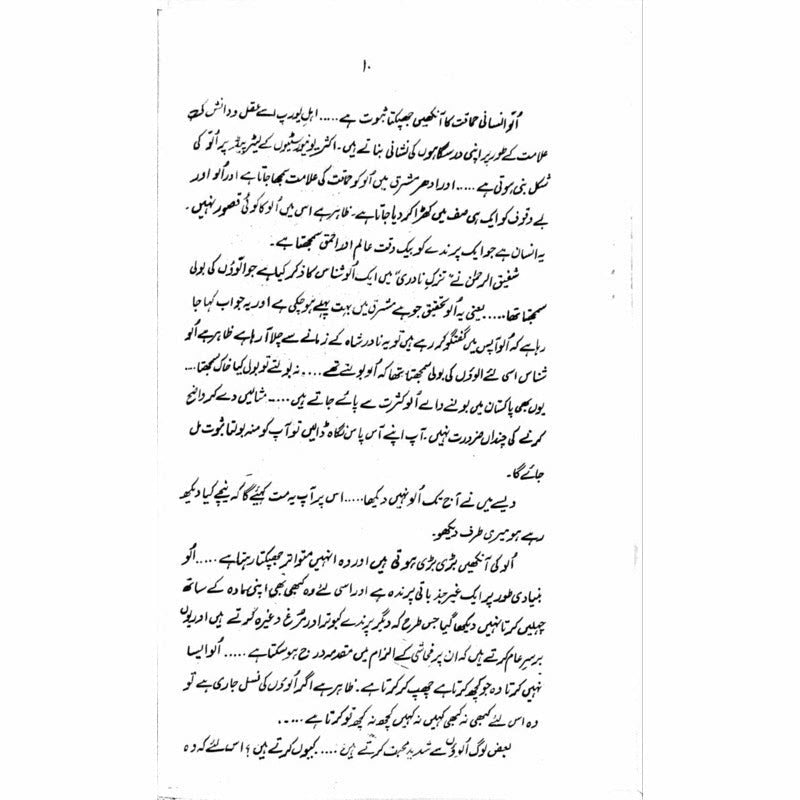 ۱۰
اُلّو انسانی حماقت کا آنکھیں جھپکتا ثبوت ہے..... اہلِ یورپ اسے عقل و دانش کی
علامت کے طور پر اپنی درسگاہوں کی نشانی بناتے ہیں۔ اکثر یونیورسٹیوں کے لیٹر پیڈ پر اُلّو کی
شکل بنی ہوتی ہے..... اور ادھر مشرق میں اُلو کو حماقت کی علامت سمجھا جاتا ہے اور اُلو اور
بے وقوف کو ایک ہی صف میں کھڑا کر دیا جاتا ہے۔ ظاہر ہے اس میں اُلو کا کوئی قصور نہیں۔
یہ انسان ہے جو ایک پرندے کو بیک وقت عالم اور احمق سمجھتا ہے۔
شفیق الرحمٰن نے "تزکِ نادری" میں ایک اُلو شناس کا ذکر کیا ہے جو الوؤں کی بولی
سمجھتا تھا..... یعنی یہ اُلو تحقیق جو ہے مشرق میں بہت پہلے ہو چکی ہے اور یہ جو اب کہا جا
رہا ہے کہ اُلو آپس میں گفتگو کر رہے ہیں تو یہ نادر شاہ کے زمانے سے چلا آ رہا ہے ظاہر ہے اُلو
شناس اسی لئے الوؤں کی بولی سمجھتا تھا کہ اُلو بولتے تھے..... نہ بولتے تو بولی کیا خاک سمجھتا....
یوں بھی پاکستان میں بولنے والے اُلو کثرت سے پائے جاتے ہیں..... مثالیں دے کر واضح
کرنے کی چنداں ضرورت نہیں۔ آپ اپنے آس پاس نگاہ ڈالیں تو آپ کو منہ بولتا ثبوت مل
جائے گا۔
ویسے میں نے آج تک اُلو نہیں دیکھا..... اس پر آپ یہ مت کہیئے گا کہ نیچے کیا دیکھ
رہے ہو میری طرف دیکھو۔
اُلو کی آنکھیں بڑی بڑی ہوتی ہیں اور وہ انہیں متواتر جھپکتا رہتا ہے..... اُلو
بنیادی طور پر ایک غیر جذباتی پرندہ ہے اور اسی لئے وہ کبھی بھی اپنی مادہ کے ساتھ
چہلیں کرتا نہیں دیکھا گیا جس طرح کہ دیگر پرندے کبوتر اور مرغ وغیرہ کرتے ہیں اور یوں
برسرِ عام کرتے ہیں کہ ان پر فحاشی کے الزام میں مقدمہ درج ہو سکتا ہے..... اُلو ایسا
نہیں کرتا وہ جو کچھ کرتا ہے چھپ کر کرتا ہے۔ ظاہر ہے اگر اُلوؤں کی نسل جاری ہے تو
وہ اس لئے کبھی نہ کبھی کہیں نہ کہیں کچھ نہ کچھ تو کرتا ہے.....
بعض لوگ اُلوؤں سے شدید محبت کرتے ہیں..... کیوں کرتے ہیں؟ اس لئے کہ وہ